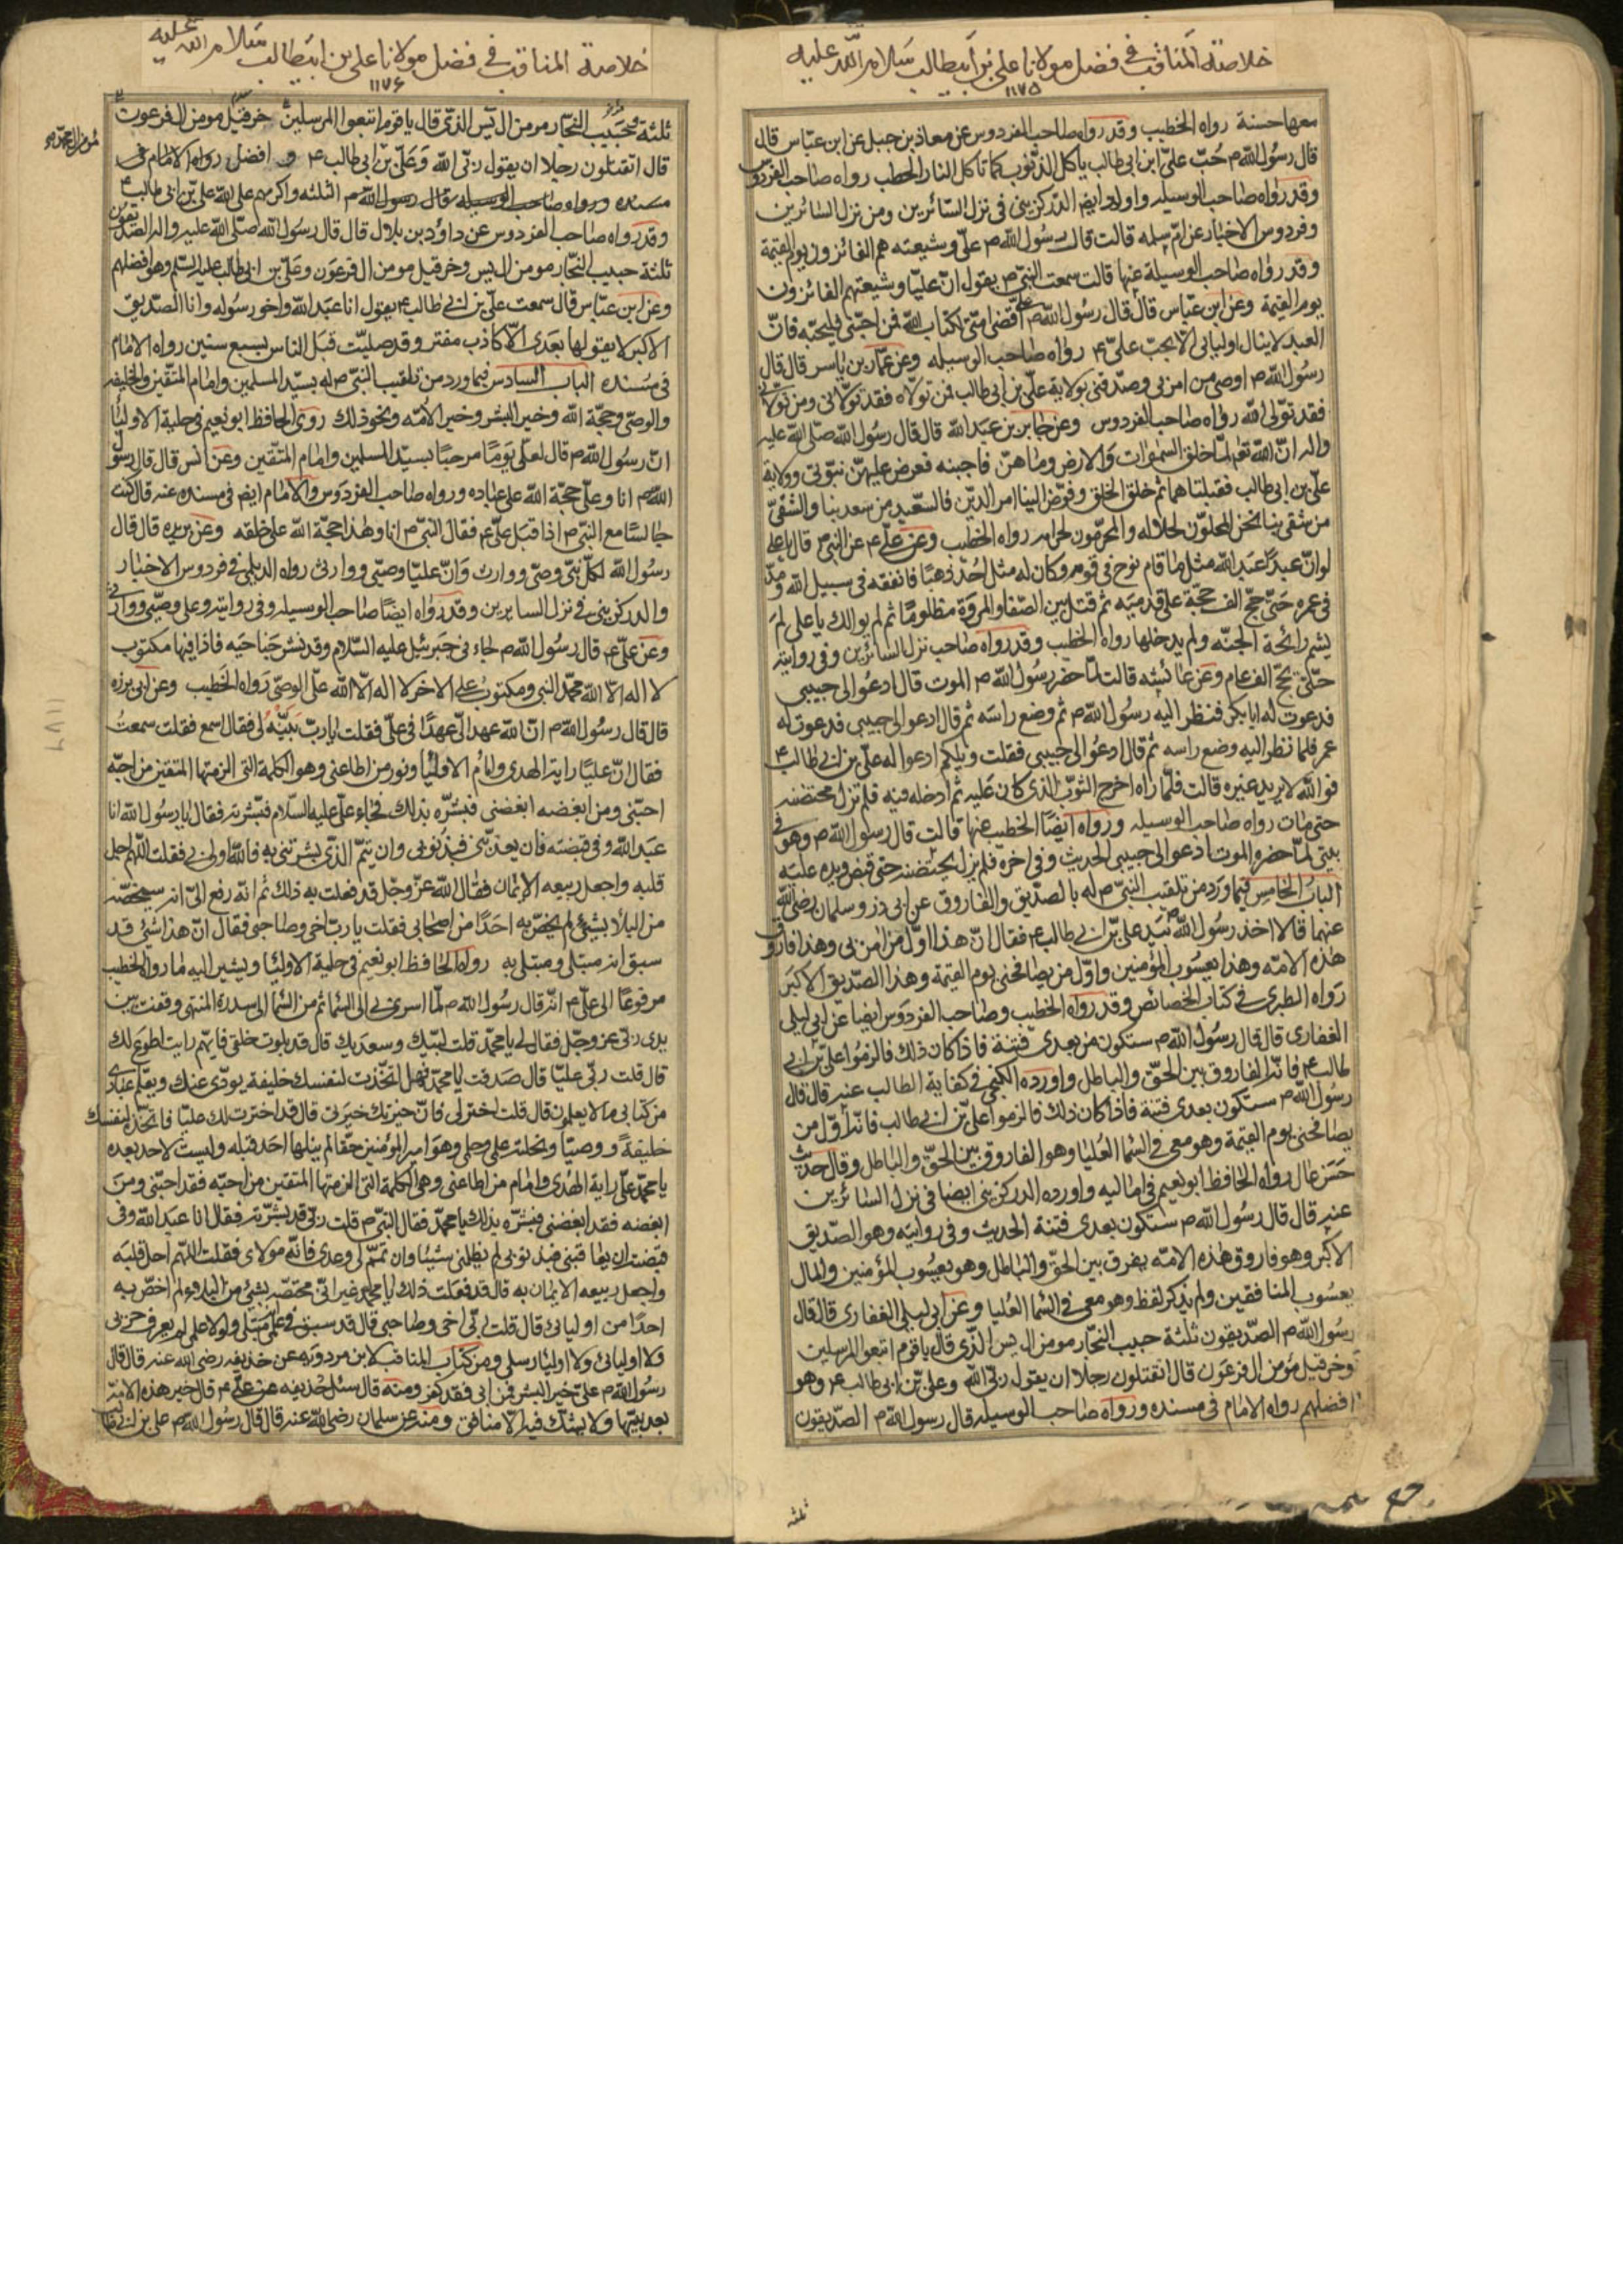 خلاصة المناقب في فضل مولانا علي بن ابيطالب سلام الله عليه
١١٧٥
معها حسنة رواه الخطيب وقد رواه صاحب الفردوس عن معاذ بن جبل عن ابن عباس قال
قال رسول الله ص حب علي ابن ابي طالب ياكل الذنوب كما تاكل النار الحطب رواه صاحب الفردوس
وقد رواه صاحب الوسيله واورده ايضا الدركزيني في نزل السائرين ومن نزل السائرين
وفردوس الاخبار عن ام سلمه قالت قال رسول الله ص علي وشيعته هم الفائزون يوم القيمة
وقد رواه صاحب الوسيلة عنها قالت سمعت النبي ص يقول ان عليا وشيعتهم الفائزون
يوم القيمة وعن ابن عباس قال قال رسول الله ص علي اقضى امتي بكتاب الله فمن احبني فليحبه فان
العبد لاينال اولياى الا بحب علي ع رواه صاحب الوسيله وعن عمار بن ياسر قال قال
رسول الله ص اوصى من امن بى وصدقني بولاية علي بن ابي طالب فمن تولاه فقد تولاني ومن تولاني
فقد تولى الله رواه صاحب الفردوس وعن جابر بن عبد الله قال قال رسول الله صلى الله عليه
واله ان الله تعم لما خلق السموات والارض دعاهن فاجبنه فعرض عليهن نبوتى وولاية
علي بن ابي طالب فقبلتاهما ثم خلق الخلق وفوض الينا امر الدين فالسعيد من سعد بنا والشقي
من شقي بنا نحن المحلون لحلاله والمحرمون لحرامه رواه الخطيب وعن علي ع عن النبي ص قال يا علي
لو ان عبدا عبد الله مثل ما قام نوح في قومه وكان له مثل احد ذهبا فانفقه في سبيل الله ومد
في عمره حتى حج الف حجة على قدميه ثم قتل بين الصفا والمروة مظلوما ثم لم يوالك يا علي لم
يشم رائحة الجنه ولم يدخلها رواه الخطيب وقد رواه صاحب نزل السائرين وفي روايته
حتى يحج الف عام وعن عائشه قالت لما حضر رسول الله ص الموت قال ادعوا الى حبيبي
فدعوت له ابا بكر فنظر اليه رسول الله ص ثم وضع راسه ثم قال ادعوا الى حبيبي فدعوت له
عمر فلما نظر اليه وضع راسه ثم قال ادعوا الى حبيبي فقلت ويلكم ادعوا له علي بن ابي طالب ع
فوالله لا يريد غيره قالت فلما راه اخرج الثوب الذي كان عليه ثم ادخله فيه فلم تزل محتضنه
حتى مات رواه صاحب الوسيله ورواه ايضا الخطيب عنها قالت قال رسول الله ص وهو في
بيتي لما حضره الموت ادعوا الى حبيبي الحديث وفي اخره فلم يزل يحتضنه حتى قبض ويده عليه
الباب الخامس فيما ورد من تلقيب النبي ص له بالصديق والفاروق عن ابي ذر وسلمان رضي الله
عنهما قالا اخذ رسول الله ص بيد علي بن ابي طالب ع فقال ان هذا اول من امن بى وهذا فاروق
هذه الامه وهذا يعسوب المؤمنين واول من يصافحني يوم القيمة وهذا الصديق الاكبر
رواه الطبرى في كتاب الخصائص وقد رواه الخطيب وصاحب الفردوس ايضا عن ابي ليلى
الغفارى قال قال رسول الله ص ستكون من بعدى فتنة فاذا كان ذلك فالزموا علي بن ابي
طالب ع فانه الفاروق بين الحق والباطل واورده الكنجي في كفاية الطالب عنه قال قال
رسول الله ص ستكون بعدى فتنة فاذا كان ذلك فالزموا علي بن ابي طالب فانه اول من
يصافحني يوم القيمة وهو معي في السما العليا وهو الفاروق بين الحق والباطل وقال حديث
حسن عال رواه الحافظ ابو نعيم في اماليه واورده الدركزيني ايضا في نزل السائرين
عنه قال قال رسول الله ص ستكون بعدى فتنة الحديث وفي روايته وهو الصديق
الاكبر وهو فاروق هذه الامه يفرق بين الحق والباطل وهو يعسوب المؤمنين والمال
يعسوب المنافقين ولم يذكر لفظ وهو معي في السما العليا وعن ابي ليلى الغفارى قال قال
رسول الله ص الصديقون ثلثة حبيب النجار مومن ال يس الذي قال يا قوم اتبعوا المرسلين
وخرقيل مؤمن ال فرعون قال اتقتلون رجلا ان يقول ربي الله وعلي بن ابي طالب ع وهو
افضلهم رواه الامام في مسنده ورواه صاحب الوسيله قال رسول الله ص الصديقون
ثلثة
خلاصة المناقب في فضل مولانا علي بن ابيطالب سلام الله عليه
١١٧٦
ثلثة حبيب النجار مومن ال يس الذي قال يا قوم اتبعوا المرسلين خرقيل مومن ال فرعون
قال اتقتلون رجلا ان يقول ربي الله وعلي بن ابي طالب ع و افضل رواه الامام في
مسنده ورواه صاحب الوسيله قال رسول الله ص الثلثه واكرمهم على الله علي بن ابي طالب ع
وقد رواه صاحب الفردوس عن داود بن بلال قال قال رسول الله صلى الله عليه واله الصديقون
ثلثة حبيب النجار مومن ال يس وخرقيل مومن ال فرعون وعلي بن ابي طالب عليه السلم وهو افضلهم
وعن ابن عباس قال سمعت علي بن ابي طالب ع يقول انا عبد الله واخو رسوله وانا الصديق
الاكبر لا يقولها بعدى الا كاذب مفتر وقد صليت قبل الناس بسبع سنين رواه الامام
في مسنده الباب السادس فيما ورد من تلقيب النبي ص له بسيد المسلمين وامام المتقين والخليفه
والوصي وحجة الله وخير البشر وخير الامه ونحو ذلك روى الحافظ ابو نعيم في حلية الاوليا
ان رسول الله ص قال لعلي يوما مرحبا بسيد المسلمين وامام المتقين وعن انس قال قال رسول
الله ص انا وعلي حجة الله على عباده ورواه صاحب الفردوس والامام ايضا في مسنده عنه قال كنت
جالسا مع النبي ص اذ اقبل علي ع فقال النبي ص انا وهذا حجة الله على خلقه وعن بريده قال قال
رسول الله لكل نبي وصي ووارث وان عليا وصيي ووارثي رواه الديلمي في فردوس الاخبار
والدركزيني في نزل السايرين وقد رواه ايضا صاحب الوسيله وفي روايته وعلي وصيي ووارثي
وعن علي ع قال رسول الله ص جاءني جبرئيل عليه السلام وقد نشر جناحيه فاذا فيها مكتوب
لا اله الا الله محمد النبي ومكتوب على الاخر لا اله الا الله علي الوصي رواه الخطيب وعن ابي برزه
قال قال رسول الله ص ان الله عهد الي عهدا في علي فقلت يا رب بينه لي فقال اسمع فقلت سمعت
فقال ان عليا راية الهدى وامام الاوليا ونور من اطاعني وهو الكلمة التي الزمتها المتقين من احبه
احبني ومن ابغضه ابغضني فبشره بذلك فجاء علي عليه السلام فبشرته فقال يا رسول الله انا
عبد الله وفي قبضته فان يعذبني فبذنوبي وان يتم الذي بشرتني به فالله اولى بى فقلت اللهم اجل
قلبه واجعل ربيعه الايمان فقال الله عز وجل قد فعلت به ذلك ثم انه رفع الي انه سيخصه
من البلا بشيء لم يخص به احدا من اصحابي فقلت يا رب اخي وصاحبي فقال ان هذا شيء قد
سبق انه مبتلى ومبتلى به رواه الحافظ ابو نعيم في حلية الاوليا ويشير اليه ما رواه الخطيب
مرفوعا الى علي ع انه قال رسول الله ص لما اسرى بى الى السما ثم من السما الى سدرة المنتهى وقفت بين
يدى ربي عز وجل فقال لي يا محمد قلت لبيك وسعديك قال قد بلوت خلقي فايهم رايت اطوع لك
قال قلت ربي عليا قال صدقت يا محمد فهل اتخذت لنفسك خليفة يودى عنك ويعلم عبادى
من كتابي ما لا يعلمون قال قلت اختر لى فان خيرتك خيرتي قال قد اخترت لك عليا فاتخذه لنفسك
خليفة ووصيا ونحلته علمي وحلمي وهو امير المؤمنين حقا لم ينلها احد قبله وليست لاحد بعده
يا محمد علي راية الهدى وامام من اطاعني وهي الكلمة التي الزمتها المتقين من احبه فقد احبني ومن
ابغضه فقد ابغضني فبشره بذلك يا محمد فقال النبي ص قلت ربي قد بشرته فقال انا عبد الله وفي
قبضته ان يعاقبني فبذنوبي لم يظلمني شيئا وان تمم لي وعدى فانه مولاى فقلت اللهم اجل قلبه
واجعل ربيعه الايمان به قال قد فعلت ذلك يا محمد غير اني مختصه بشيء من البلاء لم اخص به
احدا من اوليائى قال قلت ربي اخي وصاحبي قال قد سبق في علمي انه مبتلى ولولا علي لم يعرف حزبى
ولا اوليائى ولا اوليا رسلي ومن كتاب المناقب لابن مردويه عن حذيفه رضي الله عنه قال قال
رسول الله ص علي خير البشر فمن ابى فقد كفر ومنه قال سئل حذيفه عن علي ع قال خير هذه الامة
بعد نبيها ولا يشك فيه الا منافق ومنه عن سلمان رضي الله عنه قال قال رسول الله ص علي بن ابي طالب